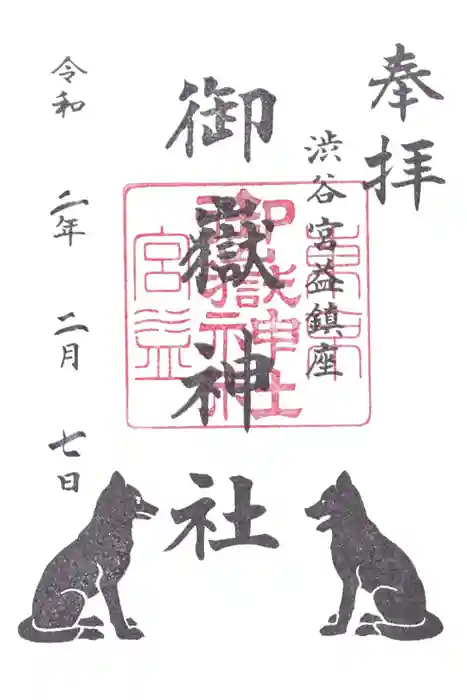 奉拝
渋谷宮益鎮座
御嶽神社
令和 二年 二月 七日
東京
御嶽神社
宮益